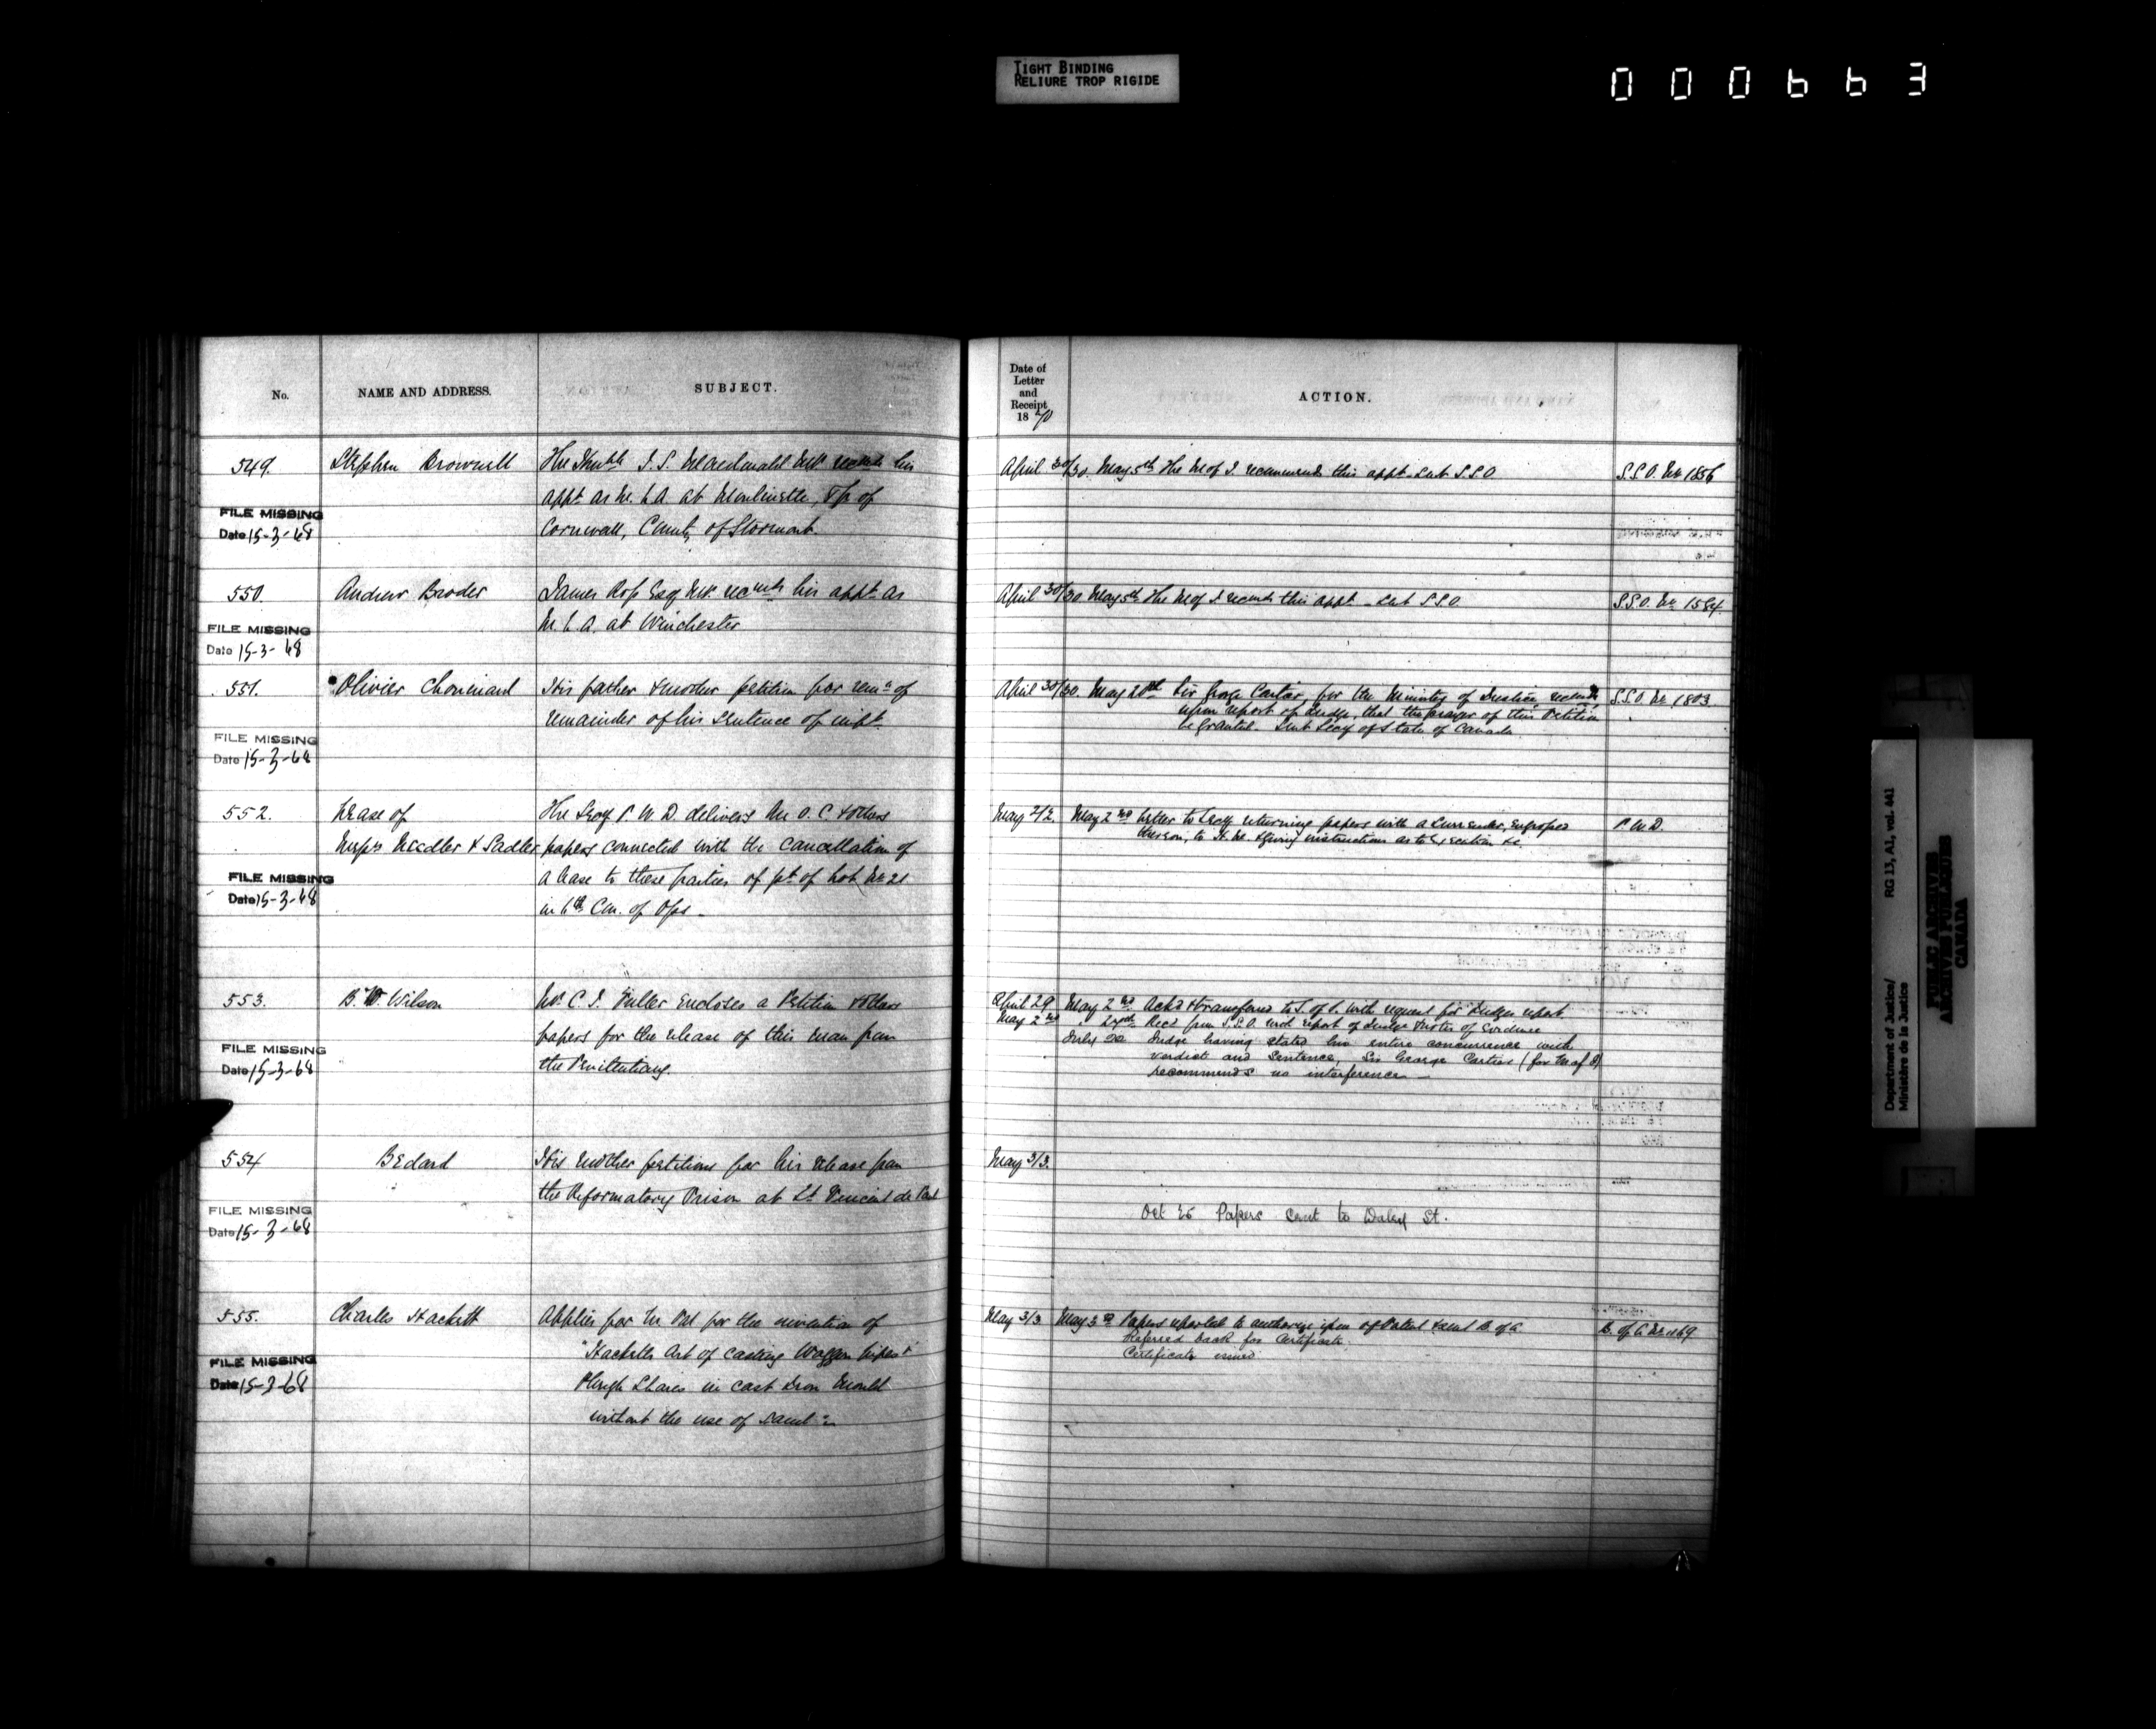 TIGHT BINDING
RELIURE TROP RIGIDE
000663
No.
NAME AND ADDRESS.
SUBJECT.
549.
Stephen Brownell
The Honble J. S. Macdonald MP recmds his
appt as M. L. A. at Moulinette, Tp of
Cornwall, County of Stormont.
FILE MISSING
Date 15-3-68
550.
Andrew Broder
James Ross Esq MP recmds his appt as
M. L. A. at Winchester
FILE MISSING
Date 15-3-68
551.
Olivier Chouinard
His father & mother petition for remn of
remainder of his sentence of impt.
FILE MISSING
Date 15-3-68
552.
Lease of
Messrs Needler & Sadler
The Secy P. W. D. delivers an O. C. & others
papers connected with the cancellation of
a lease to these parties of pt of Lot No 21
in 6th Con. of Ops -
FILE MISSING
Date 15-3-68
553.
B. W. Wilson
Mr C. I. Fuller encloses a Petition & others
papers for the release of this man from
the Penitentiary.
FILE MISSING
Date 15-3-68
554
Bedard
His mother petitions for his release from
the Reformatory Prison at St Vincent de Paul
FILE MISSING
Date 15-3-68
555.
Charles Hackett
Applies for Pat for the invention of
"Hacketts Art of casting Waggon &
Plough Shares in cast Iron Mould
without the use of Sand"
FILE MISSING
Date 15-3-68
Date of
Letter
and
Receipt
1870
ACTION.
April 30/30. May 5th The M of J. recommends this appt. Sent S.S.O.
S.S.O. No 1856
April 30/30 May 5th The M of J recmds this appt - Sent S.S.O.
S.S.O. No 1584.
April 30/30. May 20th Sir George Cartier, for the Minister of Justice, recmds,
upon report of Judge, that the prayer of this Petition
be granted. Sent Secy of State of Canada
S.S.O. No 1803.
May 2/2. May 2nd Letter to Secy returning papers with a Surrender, engrossed
thereon, to H. M. & giving instructions as to Execution &c.
P. W. D.
April 29 May 2nd Ackd & transferred to S. of S. with request for Judges report
May 2nd " 24th Recd from S.S.O. with report of Judge & notes of Evidence
July 22 Judge having stated his entire concurrence with
verdict and sentence, Sir George Cartier (for M of J)
recommends no interference -
May 3/3.
Oct 25 Papers sent to Daly St.
May 3/3 May 3rd Papers reported to authorize issue of Patent & sent M. of A
Referred back for Certificate.
Certificate issued
M. of A No 1169
Department of Justice/
Ministère de la Justice
RG 13, A1, vol. 441
PUBLIC ARCHIVES
ARCHIVES PUBLIQUES
CANADA